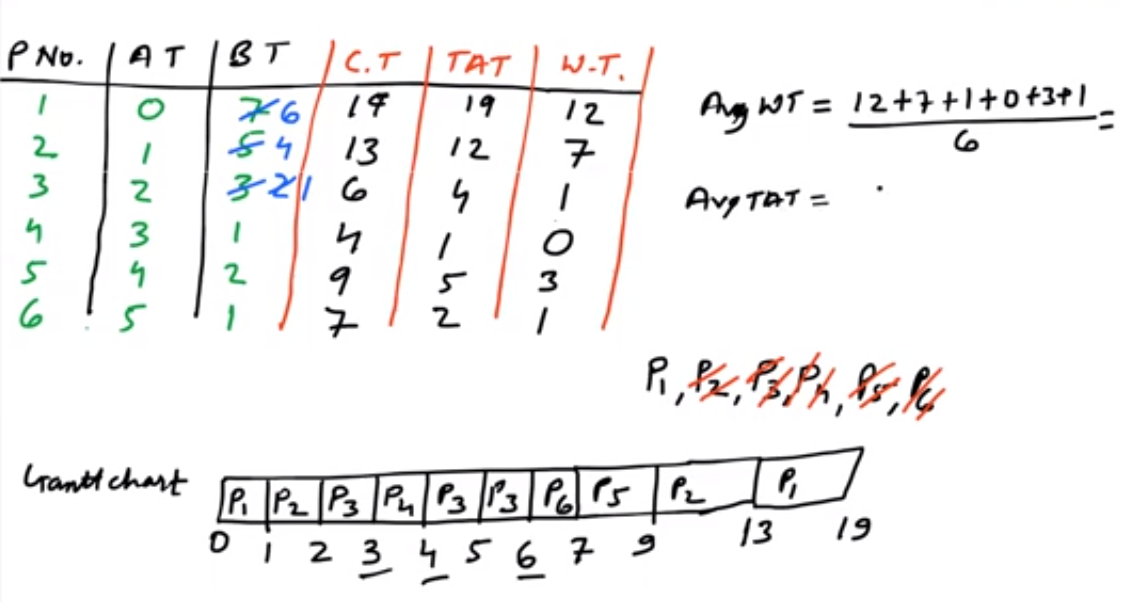 P No. AT BT C.T TAT W.T.
1 0 7 6 19 19 12
2 1 5 4 13 12 7
3 2 3 2 1 6 4 1
4 3 1 4 1 0
5 4 2 9 5 3
6 5 1 7 2 1
Avg WT = 12+7+1+0+3+1 =
6
Avg TAT =
P1, P2, P3, P4, P5, P6
Gantt chart P1 P2 P3 P4 P3 P3 P6 P5 P2 P1
0 1 2 3 4 5 6 7 9 13 19